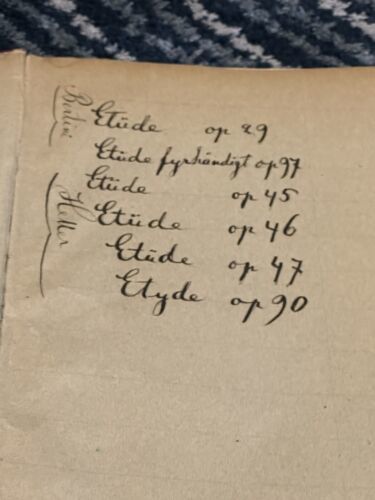 Bertini
Etüde op 29
Etüde fyrhändigt op 97
Heller
Etüde op 45
Etüde op 46
Etüde op 47
Etyde op 90